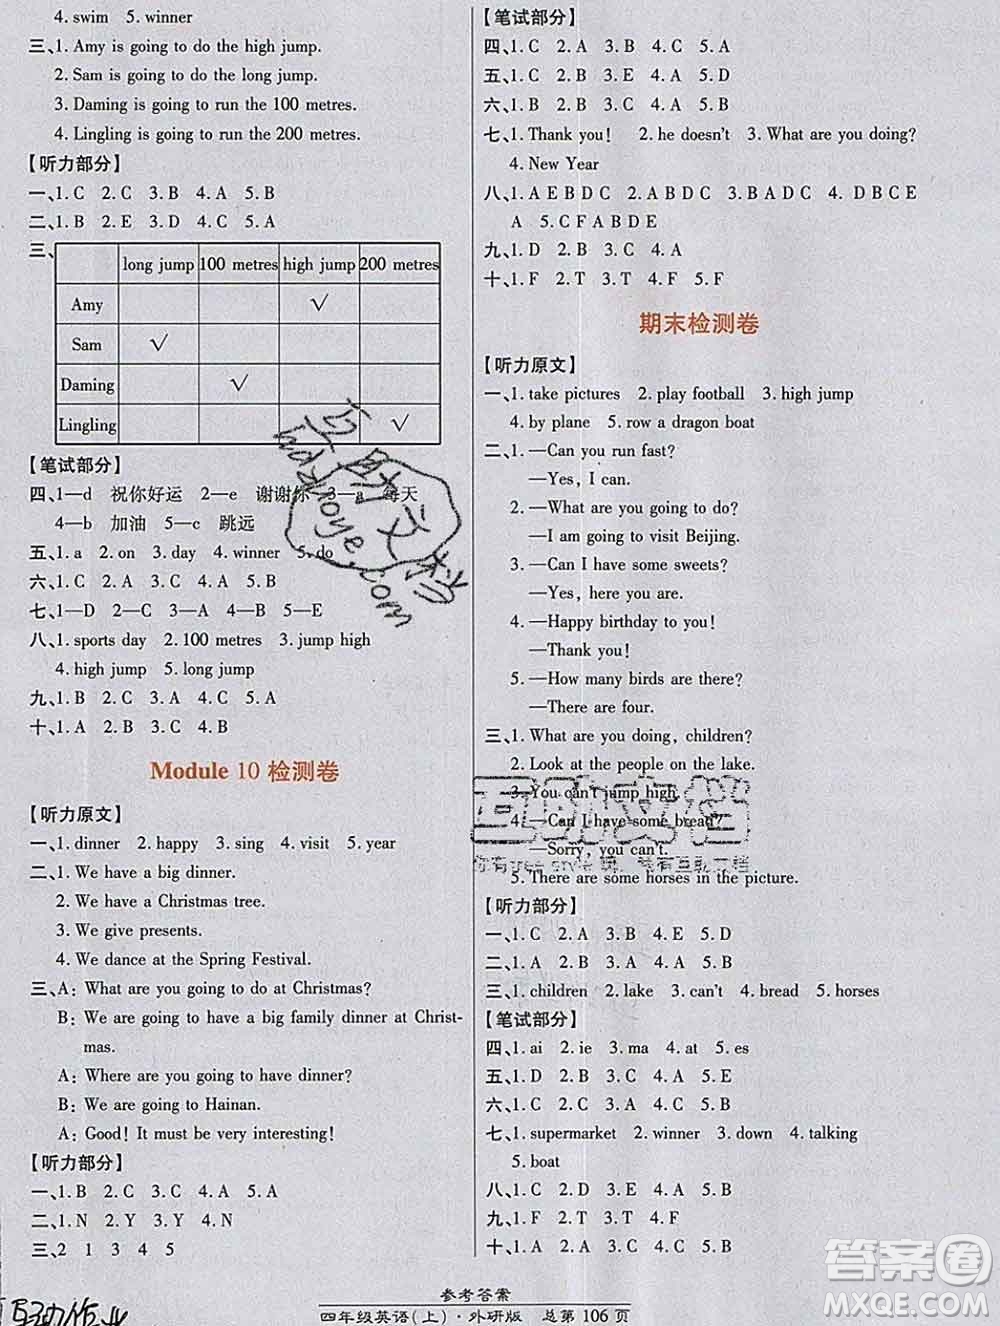 4. swim 5. winner
三、1. Amy is going to do the high jump.
2. Sam is going to do the long jump.
3. Daming is going to run the 100 metres.
4. Lingling is going to run the 200 metres.
【听力部分】
一、1. C 2. C 3. B 4. A 5. B
二、1. B 2. E 3. D 4. C 5. A
三、
long jump 100 metres high jump 200 metres
Amy √
Sam √
Daming √
Lingling √
【笔试部分】
四、1—d 祝你好运 2—e 谢谢你 3—a 每天
4—b 加油 5—c 跳远
五、1. a 2. on 3. day 4. winner 5. do
六、1. C 2. A 3. C 4. A 5. B
七、1—D 2—C 3—A 4—B 5—E
八、1. sports day 2. 100 metres 3. jump high
4. high jump 5. long jump
九、1. B 2. C 3. A 4. C 5. A
十、1. A 2. B 3. C 4. B
Module 10 检测卷
【听力原文】
一、1. dinner 2. happy 3. sing 4. visit 5. year
二、1. We have a big dinner.
2. We have a Christmas tree.
3. We give presents.
4. We dance at the Spring Festival.
三、A: What are you going to do at Christmas?
B: We are going to have a big family dinner at Christ-
mas.
A: Where are you going to have dinner?
B: We are going to Hainan.
A: Good! It must be very interesting!
【听力部分】
一、1. B 2. C 3. A 4. C 5. A
二、1. N 2. Y 3. Y 4. N
三、2 1 3 4 5
【笔试部分】
四、1. C 2. A 3. B 4. C 5. A
五、1. C 2. B 3. E 4. A 5. D
六、1. B 2. B 3. C 4. A 5. C
七、1. Thank you! 2. he doesn't 3. What are you doing?
4. New Year
八、1. A E B D C 2. C A E B D 3. B D A E C 4. D B C E
A 5. C F A B D E
九、1. D 2. B 3. C 4. A
十、1. F 2. T 3. T 4. F 5. F
期末检测卷
【听力原文】
一、1. take pictures 2. play football 3. high jump
4. by plane 5. row a dragon boat
二、1. —Can you run fast?
—Yes, I can.
2. —What are you going to do?
—I am going to visit Beijing.
3. —Can I have some sweets?
—Yes, here you are.
4. —Happy birthday to you!
—Thank you!
5. —How many birds are there?
—There are four.
三、1. What are you doing, children?
2. Look at the people on the lake.
3. You can't jump high.
4. —Can I have some bread?
—Sorry, you can't.
5. There are some horses in the picture.
【听力部分】
一、1. C 2. A 3. B 4. E 5. D
二、1. A 2. C 3. A 4. A 5. B
三、1. children 2. lake 3. can't 4. bread 5. horses
【笔试部分】
四、1. ai 2. ie 3. ma 4. at 5. es
五、1. D 2. B 3. C 4. A 5. A
六、1. C 2. B 3. C 4. A 5. C
七、1. supermarket 2. winner 3. down 4. talking
5. boat
八、1. C 2. D 3. E 4. B 5. A
九、1. F 2. F 3. T 4. T 5. F
十、1. A 2. C 3. A 4. A 5. B
参考答案
四年级英语(上)·外研版 总第 106 页
互动文档
hudongye.com
互动作业
答案圈
MXQE.COM